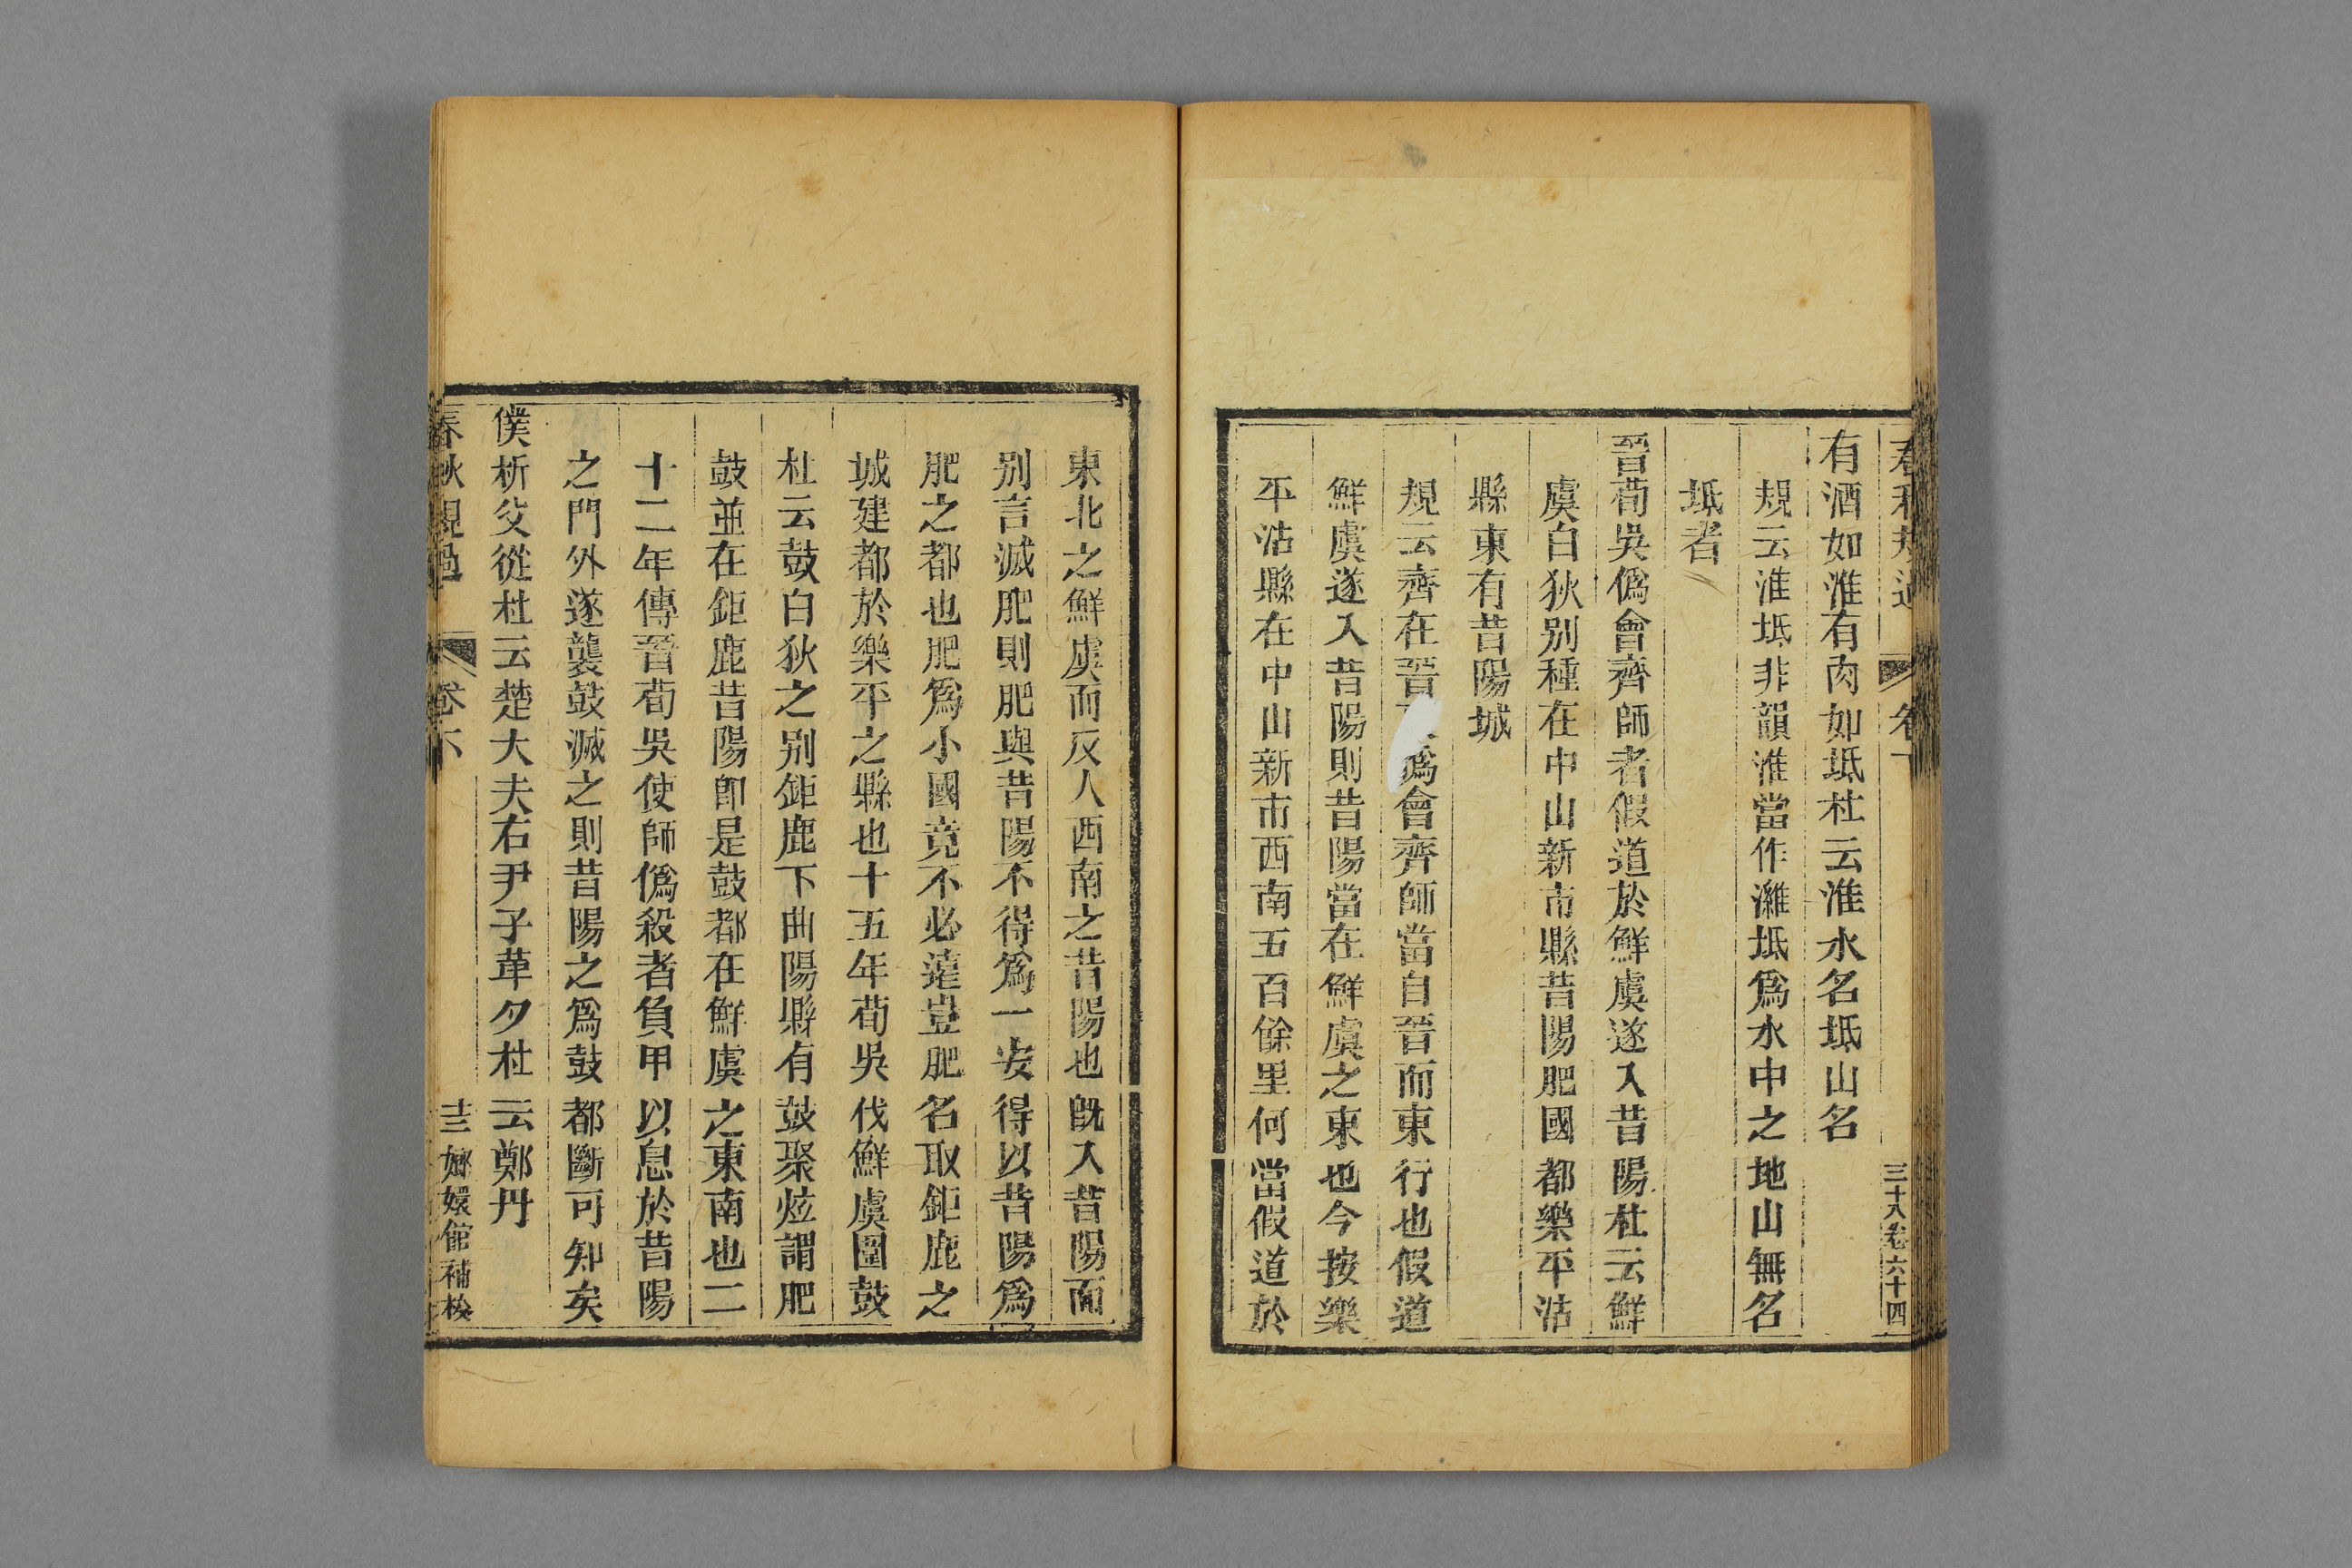 春秋規過 卷下 三十八卷六十四
有酒如淮有肉如坻杜云淮水名坻山名
規云淮坻非韻淮當作濰坻爲水中之地山無名
坻者
晉荀吳僞會齊師者假道於鮮虞遂入昔陽杜云鮮
虞白狄别種在中山新市縣昔陽肥國都樂平沾
縣東有昔陽城
規云齊在晉爲會齊師當自晉而東行也假道
鮮虞遂入昔陽則昔陽當在鮮虞之東也今按樂
平沾縣在中山新市西南五百餘里何當假道於
東北之鮮虞而反入西南之昔陽也旣入昔陽而
别言滅肥則肥與昔陽不得爲一安得以昔陽爲
肥之都也肥爲小國竟不必遠豈肥名取鉅鹿之
城建都於樂平之縣也十五年荀吳伐鮮虞圍鼓
杜云鼓白狄之别鉅鹿下曲陽縣有鼓聚炫謂肥
鼓並在鉅鹿昔陽卽是鼓都在鮮虞之東南也二
十二年傳晉荀吳使師僞殺者負甲以息於昔陽
之門外遂襲鼓滅之則昔陽之爲鼓都斷可知矣
僕析父從杜云楚大夫右尹子革夕杜云鄭丹
春秋規過 卷下 嫏嬛館補校